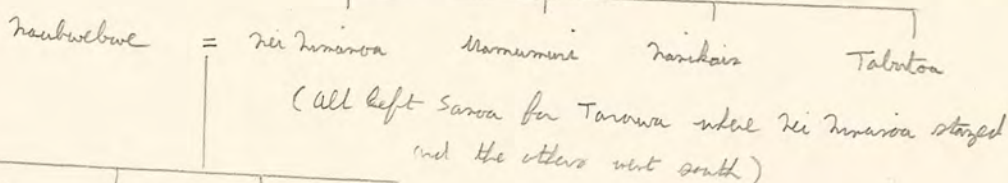 Naubwebwe = Nei Nimanoa Uamumuri Narikain Tabutoa
(All left Samoa for Tarawa where Nei Nimanoa stayed
and the others went south)